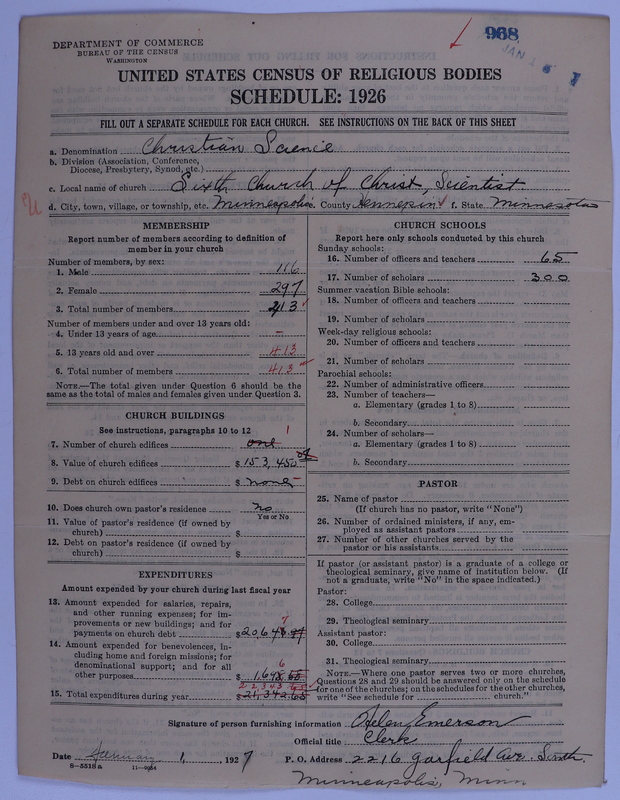 968
JAN 26 7
DEPARTMENT OF COMMERCE
BUREAU OF THE CENSUS
WASHINGTON
UNITED STATES CENSUS OF RELIGIOUS BODIES
SCHEDULE: 1926
FILL OUT A SEPARATE SCHEDULE FOR EACH CHURCH. SEE INSTRUCTIONS ON THE BACK OF THIS SHEET
a. Denomination Christian Science
b. Division (Association, Conference,
Diocese, Presbytery, Synod, etc.)
c. Local name of church Sixth Church of Christ, Scientist
d. City, town, village, or township, etc. Minneapolis. County Hennepin f. State Minnesota
MEMBERSHIP
Report number of members according to definition of
member in your church
Number of members, by sex:
1. Male 116
2. Female 297
3. Total number of members 413
Number of members under and over 13 years old:
4. Under 13 years of age –
5. 13 years old and over 413
6. Total number of members 413
NOTE.—The total given under Question 6 should be the
same as the total of males and females given under Question 3.
CHURCH BUILDINGS
See instructions, paragraphs 10 to 12
7. Number of church edifices one 1
8. Value of church edifices $ 153,450
9. Debt on church edifices $ none
10. Does church own pastor's residence no
Yes or No
11. Value of pastor's residence (if owned by
church) $
12. Debt on pastor's residence (if owned by
church) $
EXPENDITURES
Amount expended by your church during last fiscal year
13. Amount expended for salaries, repairs,
and other running expenses; for im-
provements or new buildings; and for
payments on church debt $20,64
14. Amount expended for benevolences, in-
cluding home and foreign missions; for
denominational support; and for all
other purposes $ 1,69
15. Total expenditures during year $
CHURCH SCHOOLS
Report here only schools conducted by this church
Sunday schools:
16. Number of officers and teachers 65
17. Number of scholars 300
Summer vacation Bible schools:
18. Number of officers and teachers
19. Number of scholars
Week-day religious schools:
20. Number of officers and teachers
21. Number of scholars
Parochial schools:
22. Number of administrative officers
23. Number of teachers—
a. Elementary (grades 1 to 8)
b. Secondary
24. Number of scholars—
a. Elementary (grades 1 to 8)
b. Secondary
PASTOR
25. Name of pastor
(If church has no pastor, write "None")
26. Number of ordained ministers, if any, em-
ployed as assistant pastors
27. Number of other churches served by the
pastor or his assistants
If pastor (or assistant pastor) is a graduate of a college or
theological seminary, give name of institution below. (If
not a graduate, write "No" in the space indicated.)
Pastor:
28. College
29. Theological seminary
Assistant pastor:
30. College
31. Theological seminary
NOTE.—Where one pastor serves two or more churches,
Questions 28 and 29 should be answered only on the schedule
for one of the churches; on the schedules for the other churches,
write "See schedule for church."
Signature of person furnishing information Helen Emerson
Official title Clerk
Date January 1, 1927 P. O. Address 2216 Garfield Ave. South
8—5518a 11—9954
Minneapolis, Minn